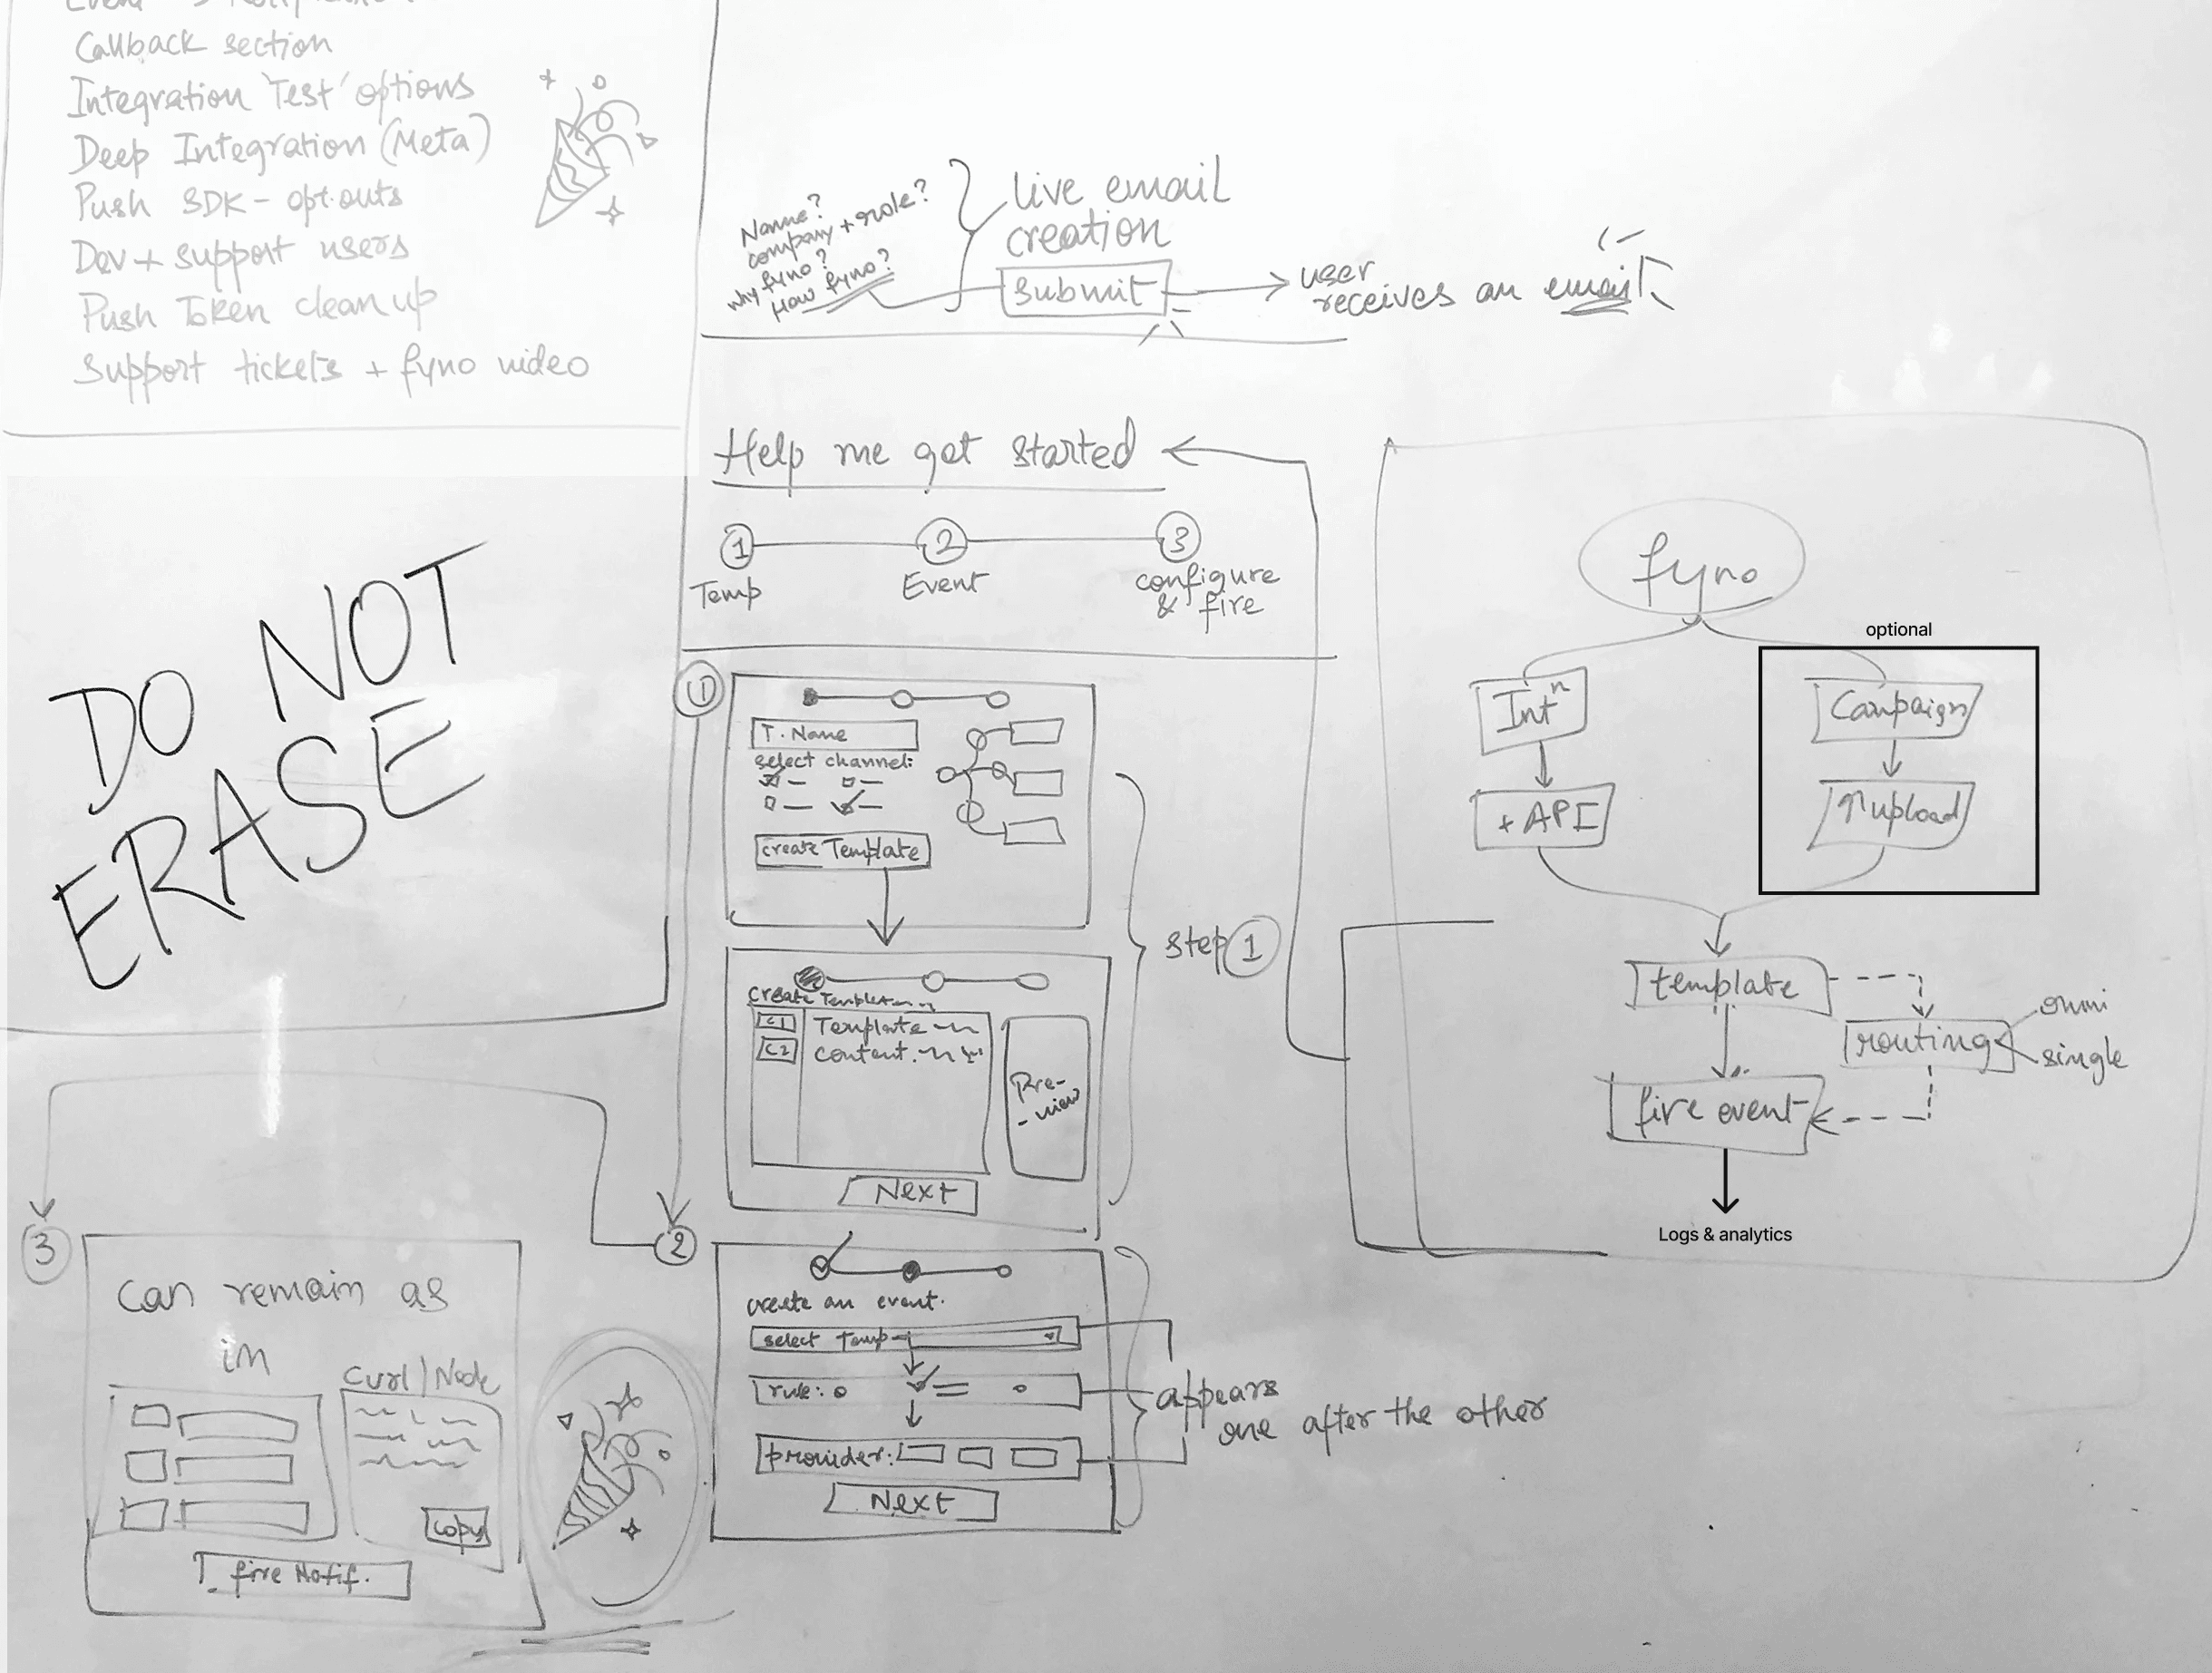 Callback section
Integration 'Test' options
Deep Integration (Meta)
Push SDK - opt.outs
Dev + support users
Push Token clean up
Support tickets + fyno video
Name?
company + role?
why fyno?
How fyno?
live email
creation
submit
user
receives an email
Help me get started
1
2
3
Temp
Event
configure
& fire
DO NOT
ERASE
1
T. Name
select channel:
create Template
step 1
create Template
C1
C2
Template
content.
Pre-
-view
Next
2
create an event.
select Temp
rule:
provider:
Next
appears
one after the other
3
can remain as
im
Curl/Node
copy
fire Notif.
fyno
optional
Intⁿ
+ API
Campaign
upload
template
routing
omni
single
fire event
Logs & analytics